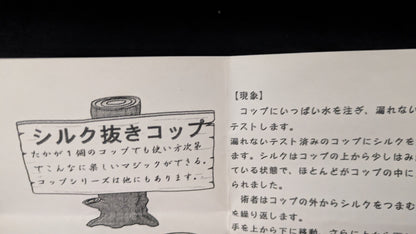 シルク抜きコップ
たかが1個のコップでも使い方次第
でこんなに楽しいマジックができる。
コップシリーズは他にもあります。
【現象】
コップにいっぱい水を注ぎ、漏れない
テストします。
漏れないテスト済みのコップにシルクを
ます。シルクはコップの上から少しはみ
ている状態で、ほとんどがコップの中に
られました。
術者はコップの外からシルクをつまむ
を繰り返します。
手を上から下に移動、さらに